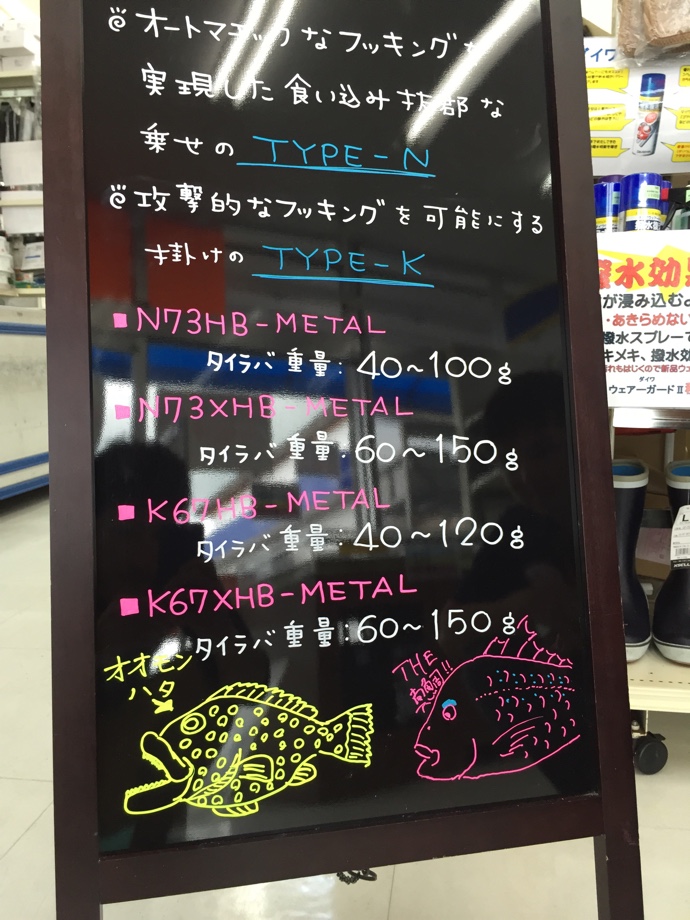 オートマチックなフッキングを
実現した食い込み抜群な
乗せの TYPE-N
攻撃的なフッキングを可能にする
掛けの TYPE-K
■N73HB-METAL
タイラバ重量:40~100g
■N73XHB-METAL
タイラバ重量:60~150g
■K67HB-METAL
タイラバ重量:40~120g
■K67XHB-METAL
タイラバ重量:60~150g
オオモン
ハタ
THE
真鯛!!
イワ
撥水効果
が浸み込むよ
・あきらめない
撥水スプレーで
キメキ、撥水効
れもはじくので新品ウェ
ダイワ
ウェアーガードⅡ
L